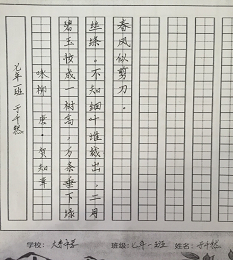 咏柳 唐·贺知章
碧玉妆成一树高,万条垂下绿
丝绦。不知细叶谁裁出,二月
春风似剪刀。
七年一班
学校: 班级:七年一班 姓名: